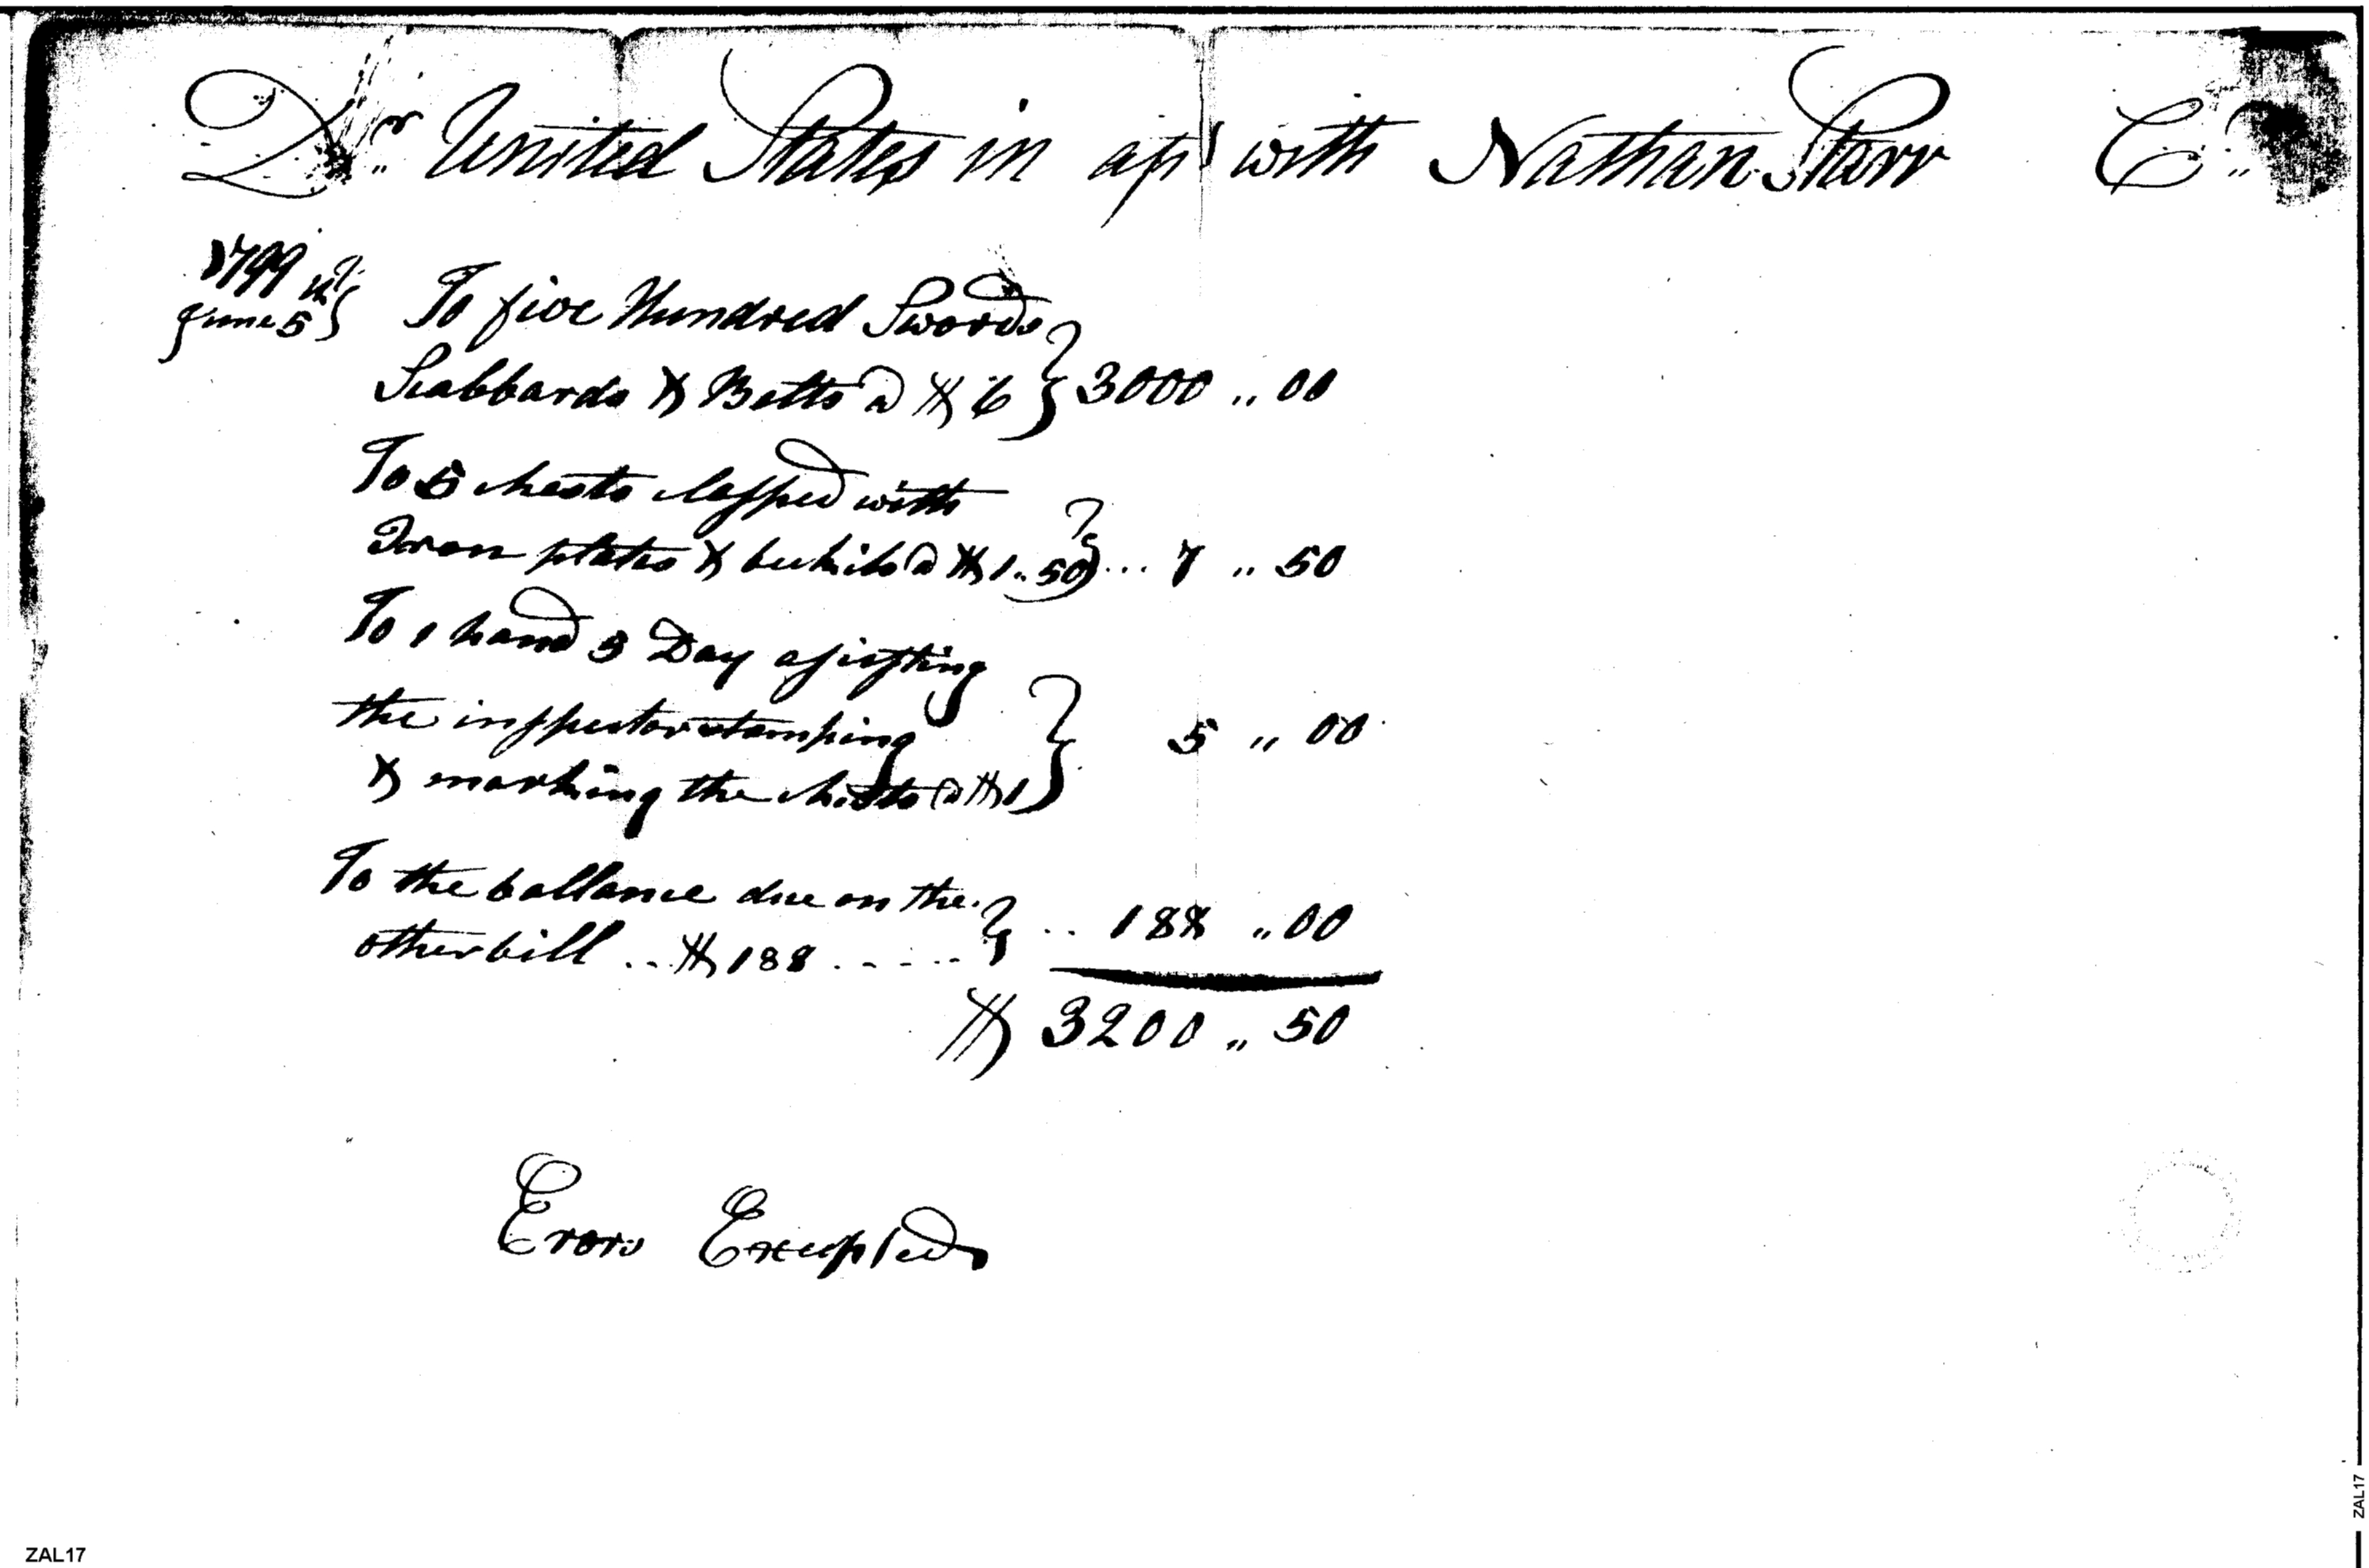 Dr United States in apt with Nathan Starr Cr
1799
June 5th
To five Hundred Swords
Scabbards & Belts @ $ 6 } 3000 ,, 00
To 5 chestsclasped with
Iron plates & buckils @ $ 1.. 50 } ... 7 ,, 50
To 1 hand 5 Day assisting
the inspector stamping
& marking the chests @ $ 1 } 5 ,, 00
To the ballance due on the
other bill .. $ 188 - - - - - } .. 188 ,, 00
$ 3200 ,, 50
Erors Excepted
ZAL17
ZAL17